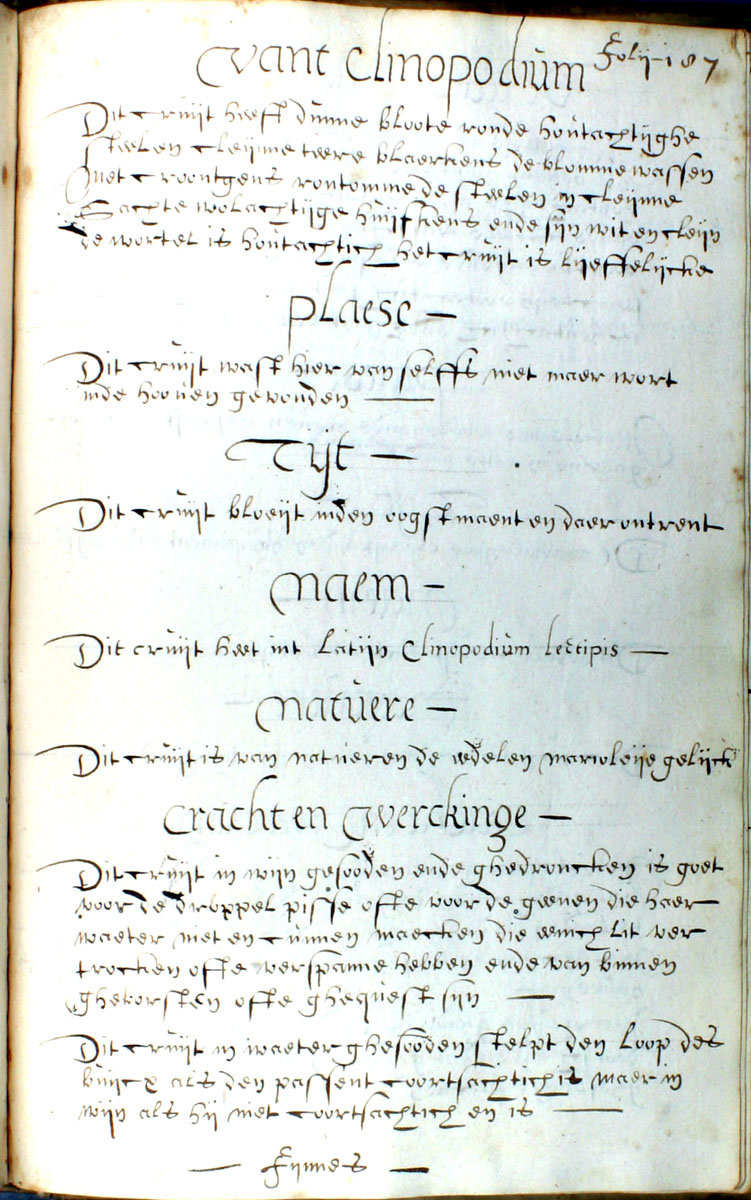 Folij 187
Vant Clinopodium
Dit cruijt heeft dunne bloote ronde houtachtijghe
steelen cleijnne teere blaerkens de blomme wassen
met croontgens rontomme de steelen in cleijnne
Sachte wolachtijge huijskens ende sijn wit en cleijn
de wortel is houtachtich het cruijt is lijeffelijcke
plaese –
Dit cruijt wast hier van selffs niet maer wort
inde hooven gevonden —
Tijt –
Dit cruijt bloeijt inden oogstmaent en daer ontrent
Naem –
Dit cruijt heet int Latijn Clinopodium lectipis —
Natuere –
Dit cruijt is van natueren de edelen marioleije gelijck
Cracht en Werckinge –
Dit cruijt in wijn gesooden ende ghedroncken is goet
voor de droppel pisse ofte voor de geenen die haer
waeter niet en cunnen maecken die eenich lit ver
trocken ofte verspanne hebben ende van binnen
ghekorsten ofte ghequest sijn —
Dit cruijt in waeter ghesooden stelpt den loop des
buijcx als den passent coortsachtich is maer in
wijn als hij niet coortsachtich en is —
— Fijnnes —